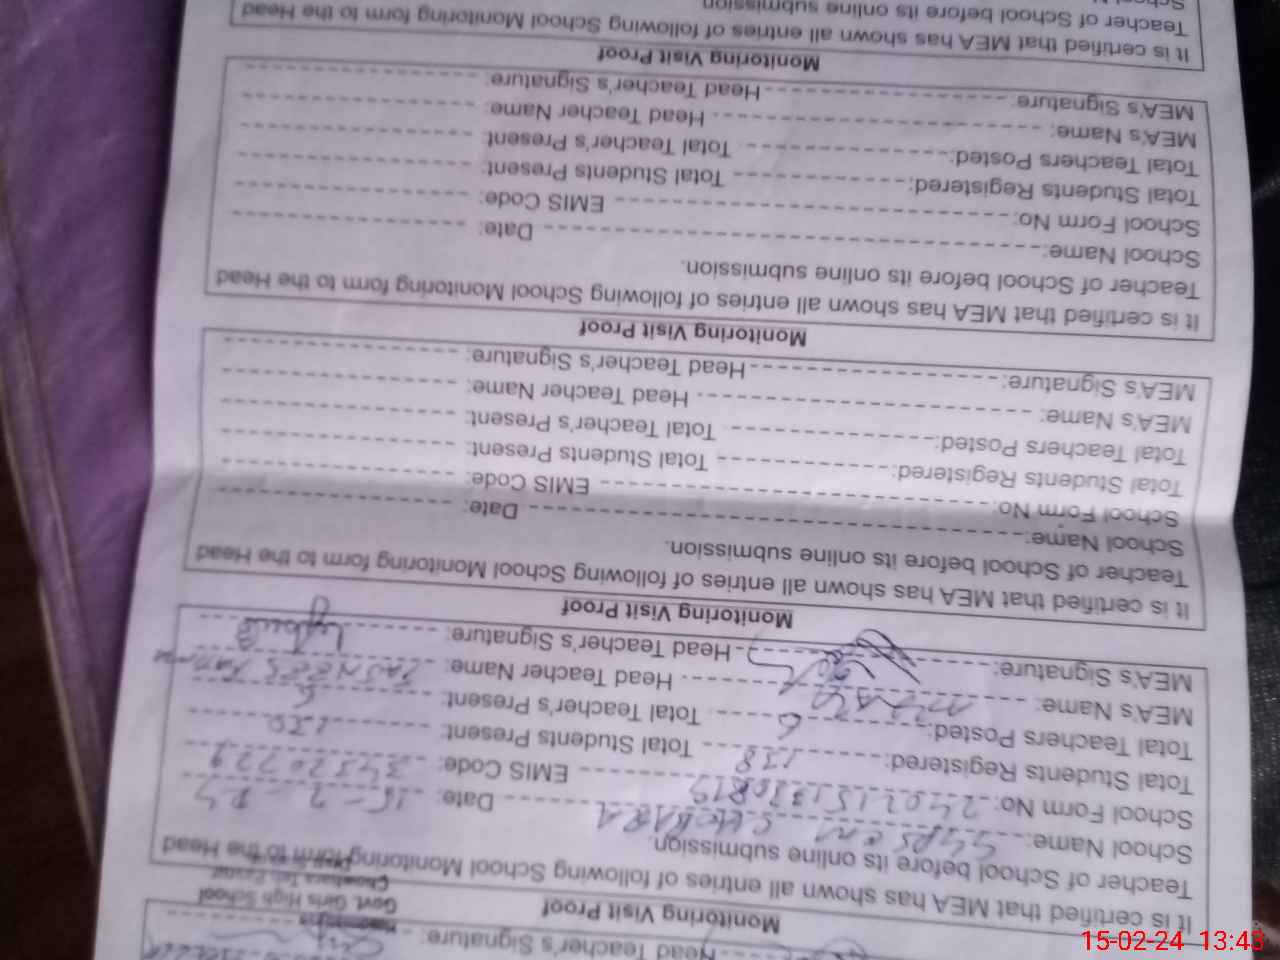 Head Teacher's Signature:
Govt. Girls High School
Monitoring Visit Proof
It is certified that MEA has shown all entries of following School Monitoring form to the Head
Teacher of School before its online submission.
School Name: Date: 15-2-24
School Form No: EMIS Code:
Total Students Registered: 138 Total Students Present: 130
Total Teachers Posted: 6 Total Teacher's Present: 6
MEA's Name: Head Teacher Name:
MEA's Signature: Head Teacher's Signature:
Monitoring Visit Proof
It is certified that MEA has shown all entries of following School Monitoring form to the Head
Teacher of School before its online submission.
School Name: Date:
School Form No: EMIS Code:
Total Students Registered: Total Students Present:
Total Teachers Posted: Total Teacher's Present:
MEA's Name: Head Teacher Name:
MEA's Signature: Head Teacher's Signature:
Monitoring Visit Proof
It is certified that MEA has shown all entries of following School Monitoring form to the Head
Teacher of School before its online submission.
School Name: Date:
School Form No: EMIS Code:
Total Students Registered: Total Students Present:
Total Teachers Posted: Total Teacher's Present:
MEA's Name: Head Teacher Name:
MEA's Signature: Head Teacher's Signature:
Monitoring Visit Proof
It is certified that MEA has shown all entries of following School Monitoring form to the Head
Teacher of School before its online submission.
15-02-24 13:43